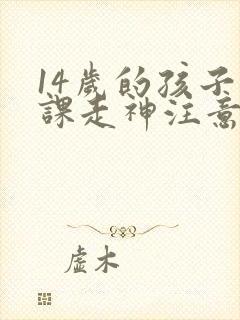 14歲的孩子
課走神注意
虛木